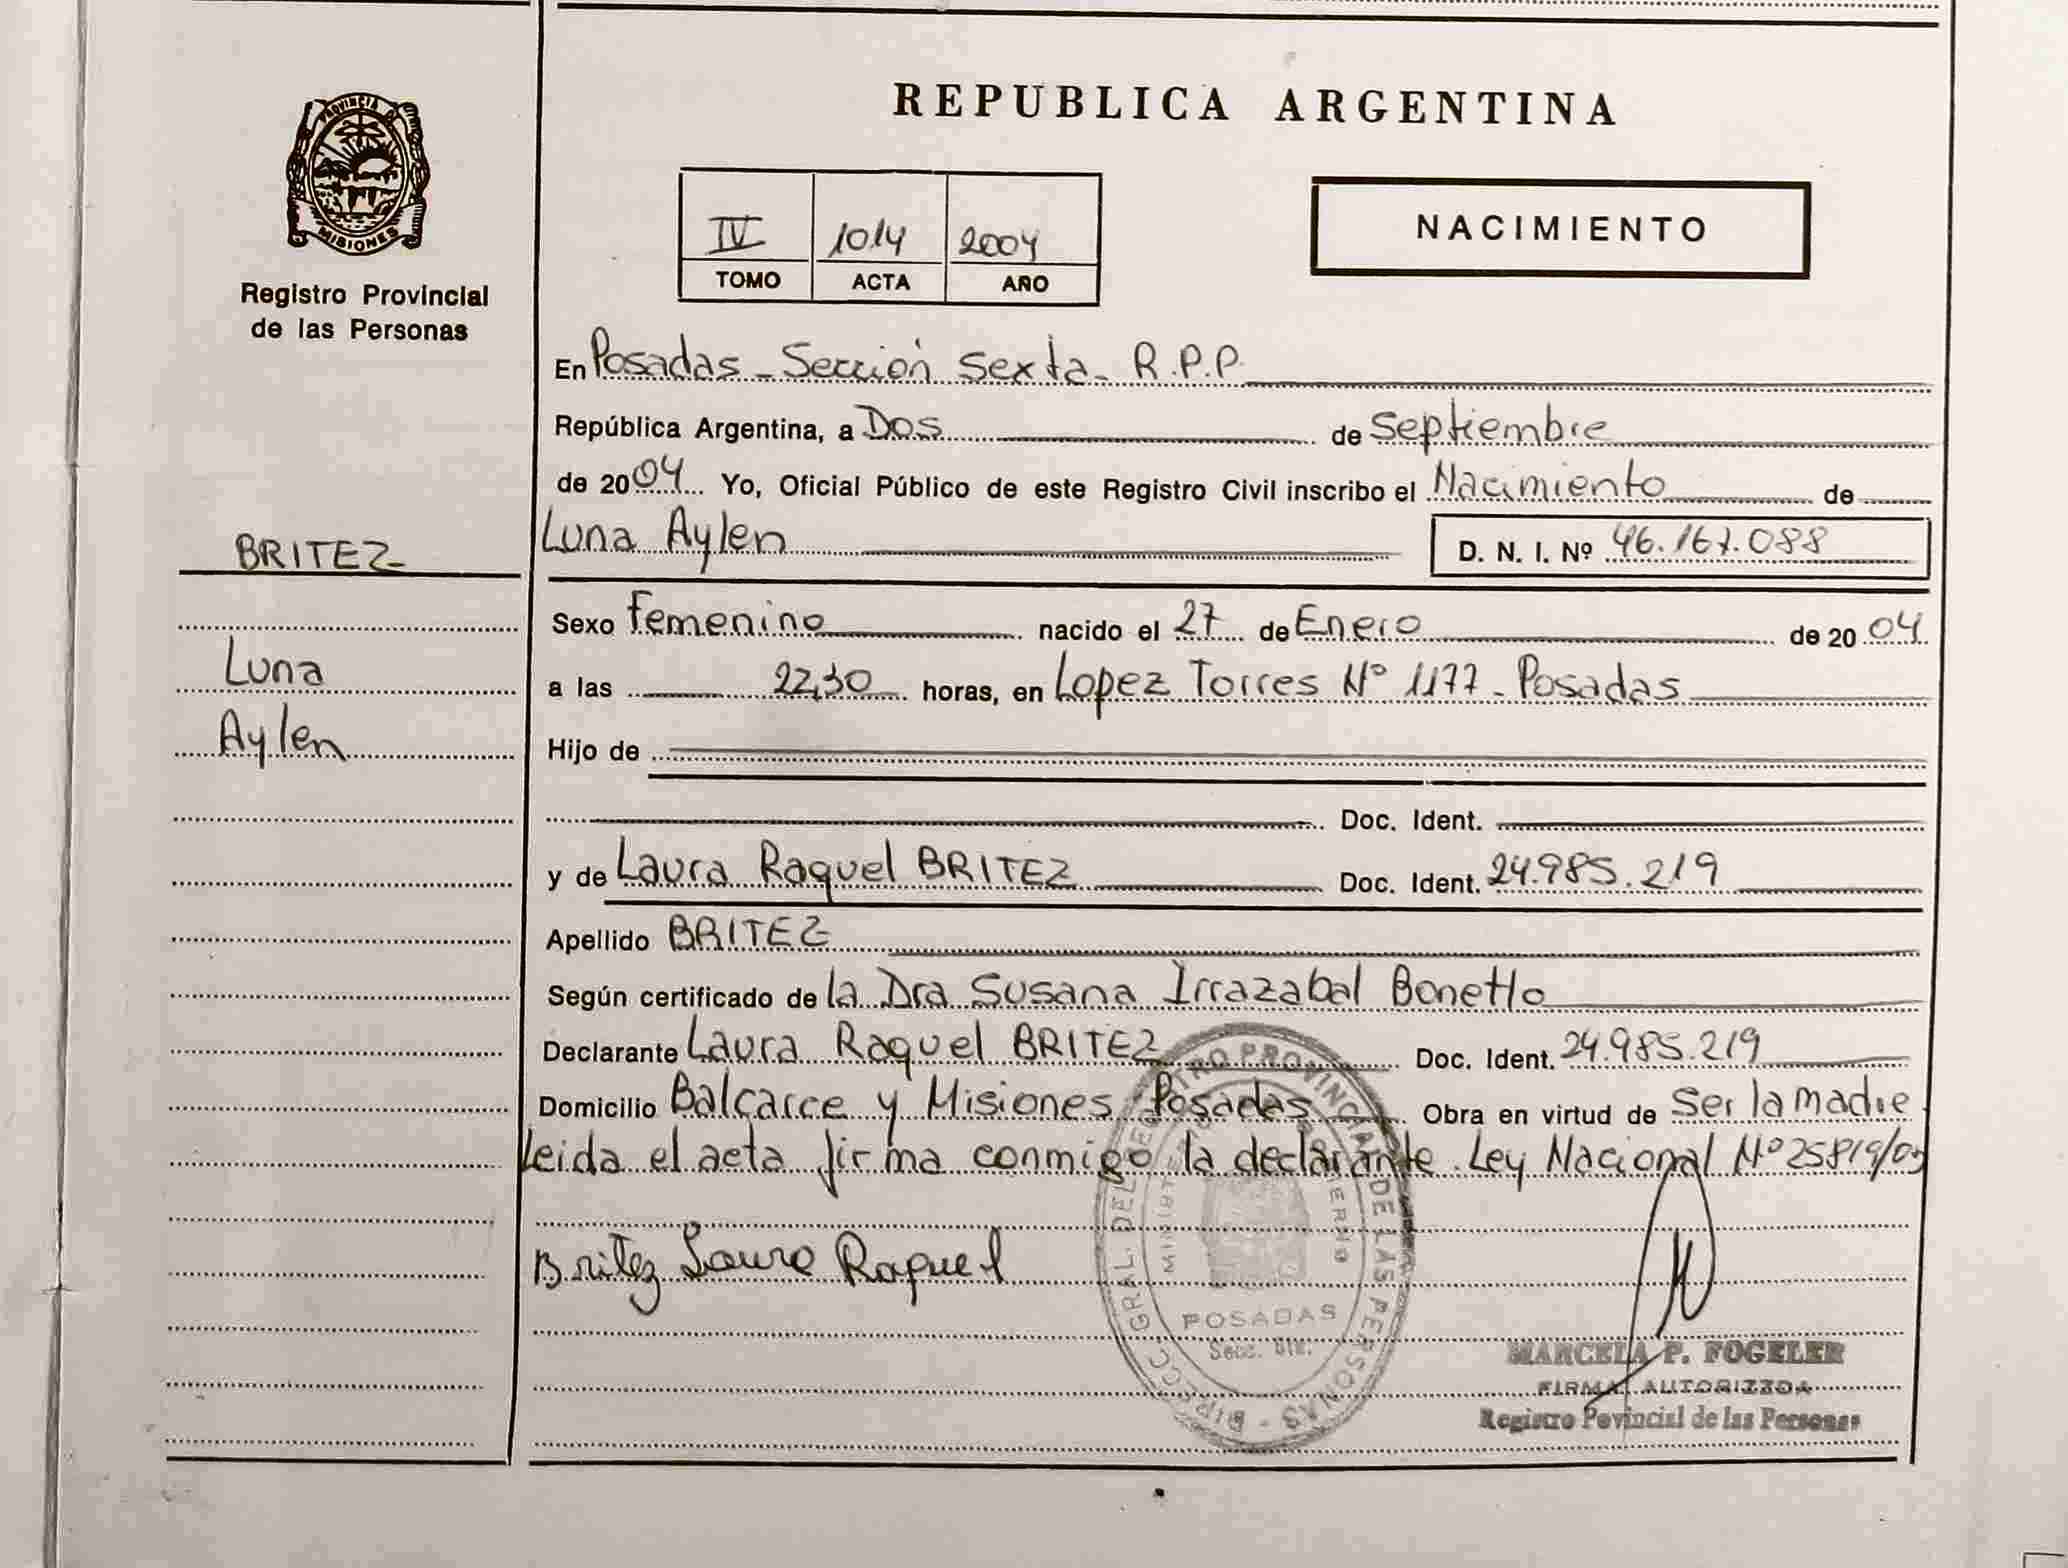 REPUBLICA ARGENTINA
PROVINCIA D
MISIONES
Registro Provincial
de las Personas
IV 1014 2004
TOMO ACTA AÑO
NACIMIENTO
En Posadas - Sección Sexta - R.P.P.
República Argentina, a Dos de Septiembre
de 2004 Yo, Oficial Público de este Registro Civil inscribo el Nacimiento de
BRITEZ
Luna Aylen
D. N. I. Nº 46.167.088
Sexo Femenino nacido el 27 de Enero de 2004
Luna
a las 22,30 horas, en Lopez Torres Nº 1177 - Posadas
Aylen
Hijo de
Doc. Ident.
y de Laura Raquel BRITEZ Doc. Ident. 24.985.219
Apellido BRITEZ
Según certificado de la Dra Susana Irrazabal Bonetto
Declarante Laura Raquel BRITEZ Doc. Ident. 24.985.219
Domicilio Balcarce y Misiones Posadas Obra en virtud de Ser la madre
Leida el acta firma conmigo la declarante. Ley Nacional Nº 25819/03
Britez Laura Raquel
DIRECC. GRAL. DEL REGISTRO PROVINCIAL DE LAS PERSONAS -
POSADAS
Secc. 6ta.
MARCELA P. FOGELER
FIRMA AUTORIZZDA
Registro Povincial de las Personas